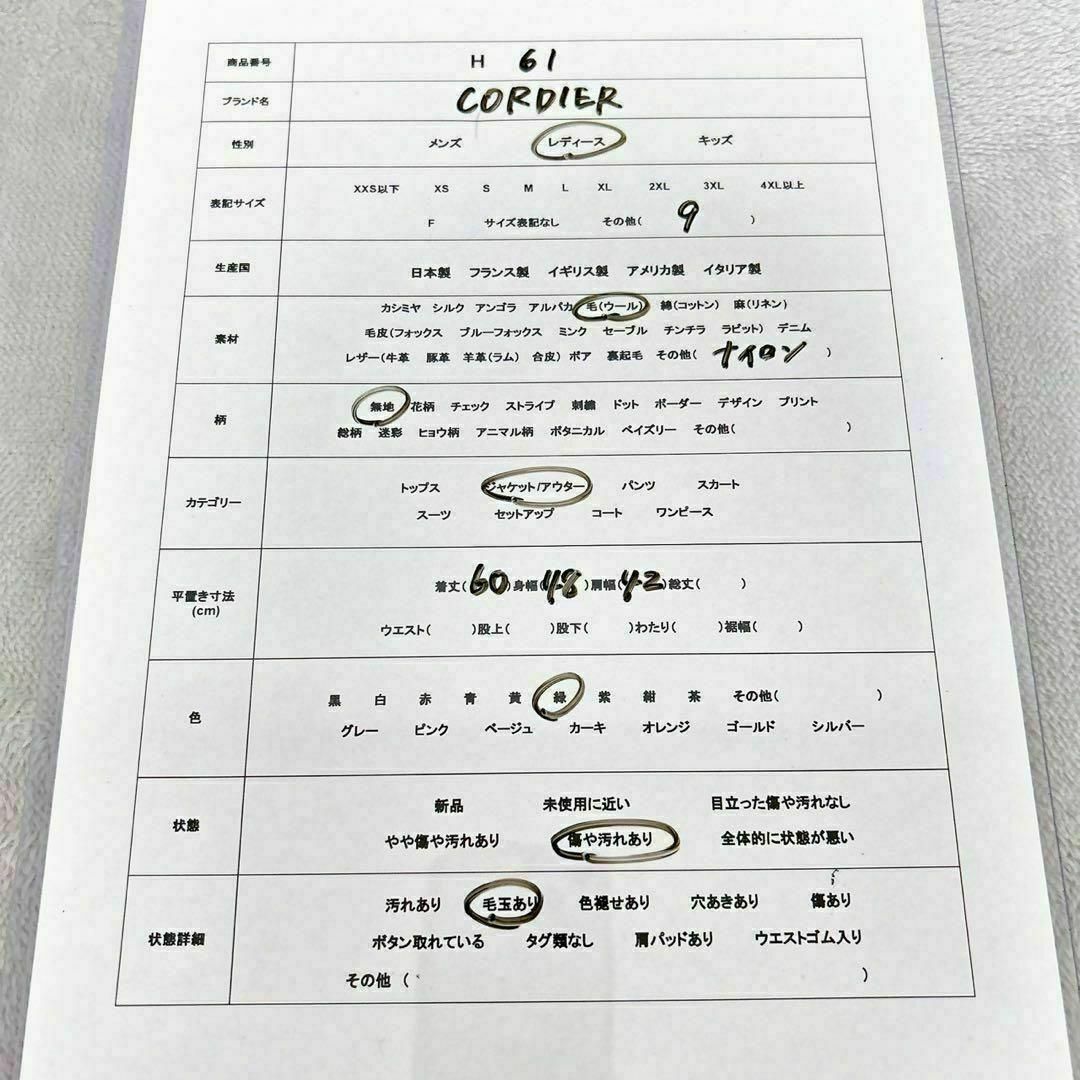 商品番号 H 61
ブランド名 CORDIER
性別 メンズ レディース キッズ
表記サイズ XXS以下 XS S M L XL 2XL 3XL 4XL以上
F サイズ表記なし その他( 9 )
生産国 日本製 フランス製 イギリス製 アメリカ製 イタリア製
素材 カシミヤ シルク アンゴラ アルパカ 毛(ウール) 綿(コットン) 麻(リネン)
毛皮(フォックス ブルーフォックス ミンク セーブル チンチラ ラビット) デニム
レザー(牛革 豚革 羊革(ラム) 合皮) ボア 裏起毛 その他( ナイロン )
柄 無地 花柄 チェック ストライプ 刺繍 ドット ボーダー デザイン プリント
総柄 迷彩 ヒョウ柄 アニマル柄 ボタニカル ペイズリー その他( )
カテゴリー トップス ジャケット/アウター パンツ スカート
スーツ セットアップ コート ワンピース
平置き寸法 (cm) 着丈( 60 )身幅( 48 )肩幅( 42 )総丈( )
ウエスト( )股上( )股下( )わたり( )裾幅( )
色 黒 白 赤 青 黄 緑 紫 紺 茶 その他( )
グレー ピンク ベージュ カーキ オレンジ ゴールド シルバー
状態 新品 未使用に近い 目立った傷や汚れなし
やや傷や汚れあり 傷や汚れあり 全体的に状態が悪い
状態詳細 汚れあり 毛玉あり 色褪せあり 穴あきあり 傷あり
ボタン取れている タグ類なし 肩パッドあり ウエストゴム入り
その他 ( )